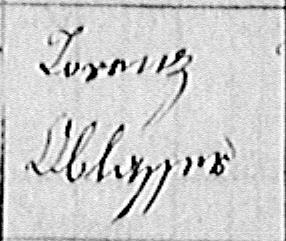 Lorenz
Oblasser